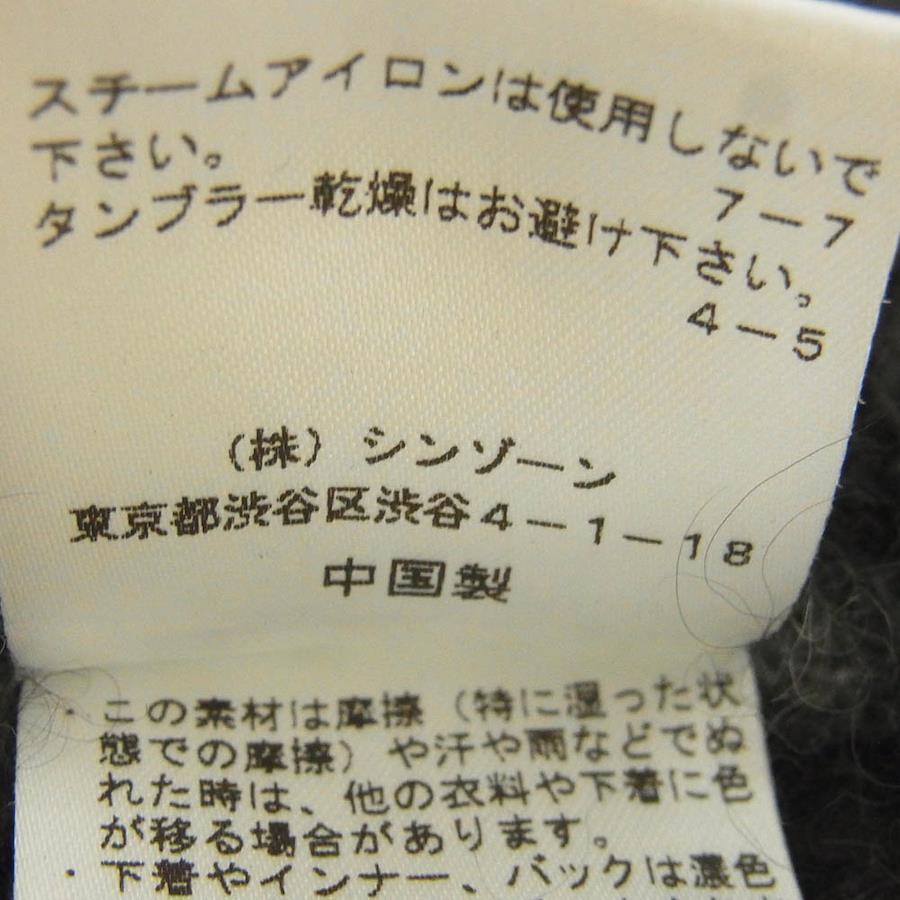 スチームアイロンは使用しないで
下さい。
7-7
タンブラー乾燥はお避け下さい。
4-5
(株) シンゾーン
東京都渋谷区渋谷4-1-18
中国製
・この素材は摩擦(特に湿った状
態での摩擦)や汗や雨などでぬ
れた時は、他の衣料や下着に色
が移る場合があります。
・下着やインナー、バックは濃色